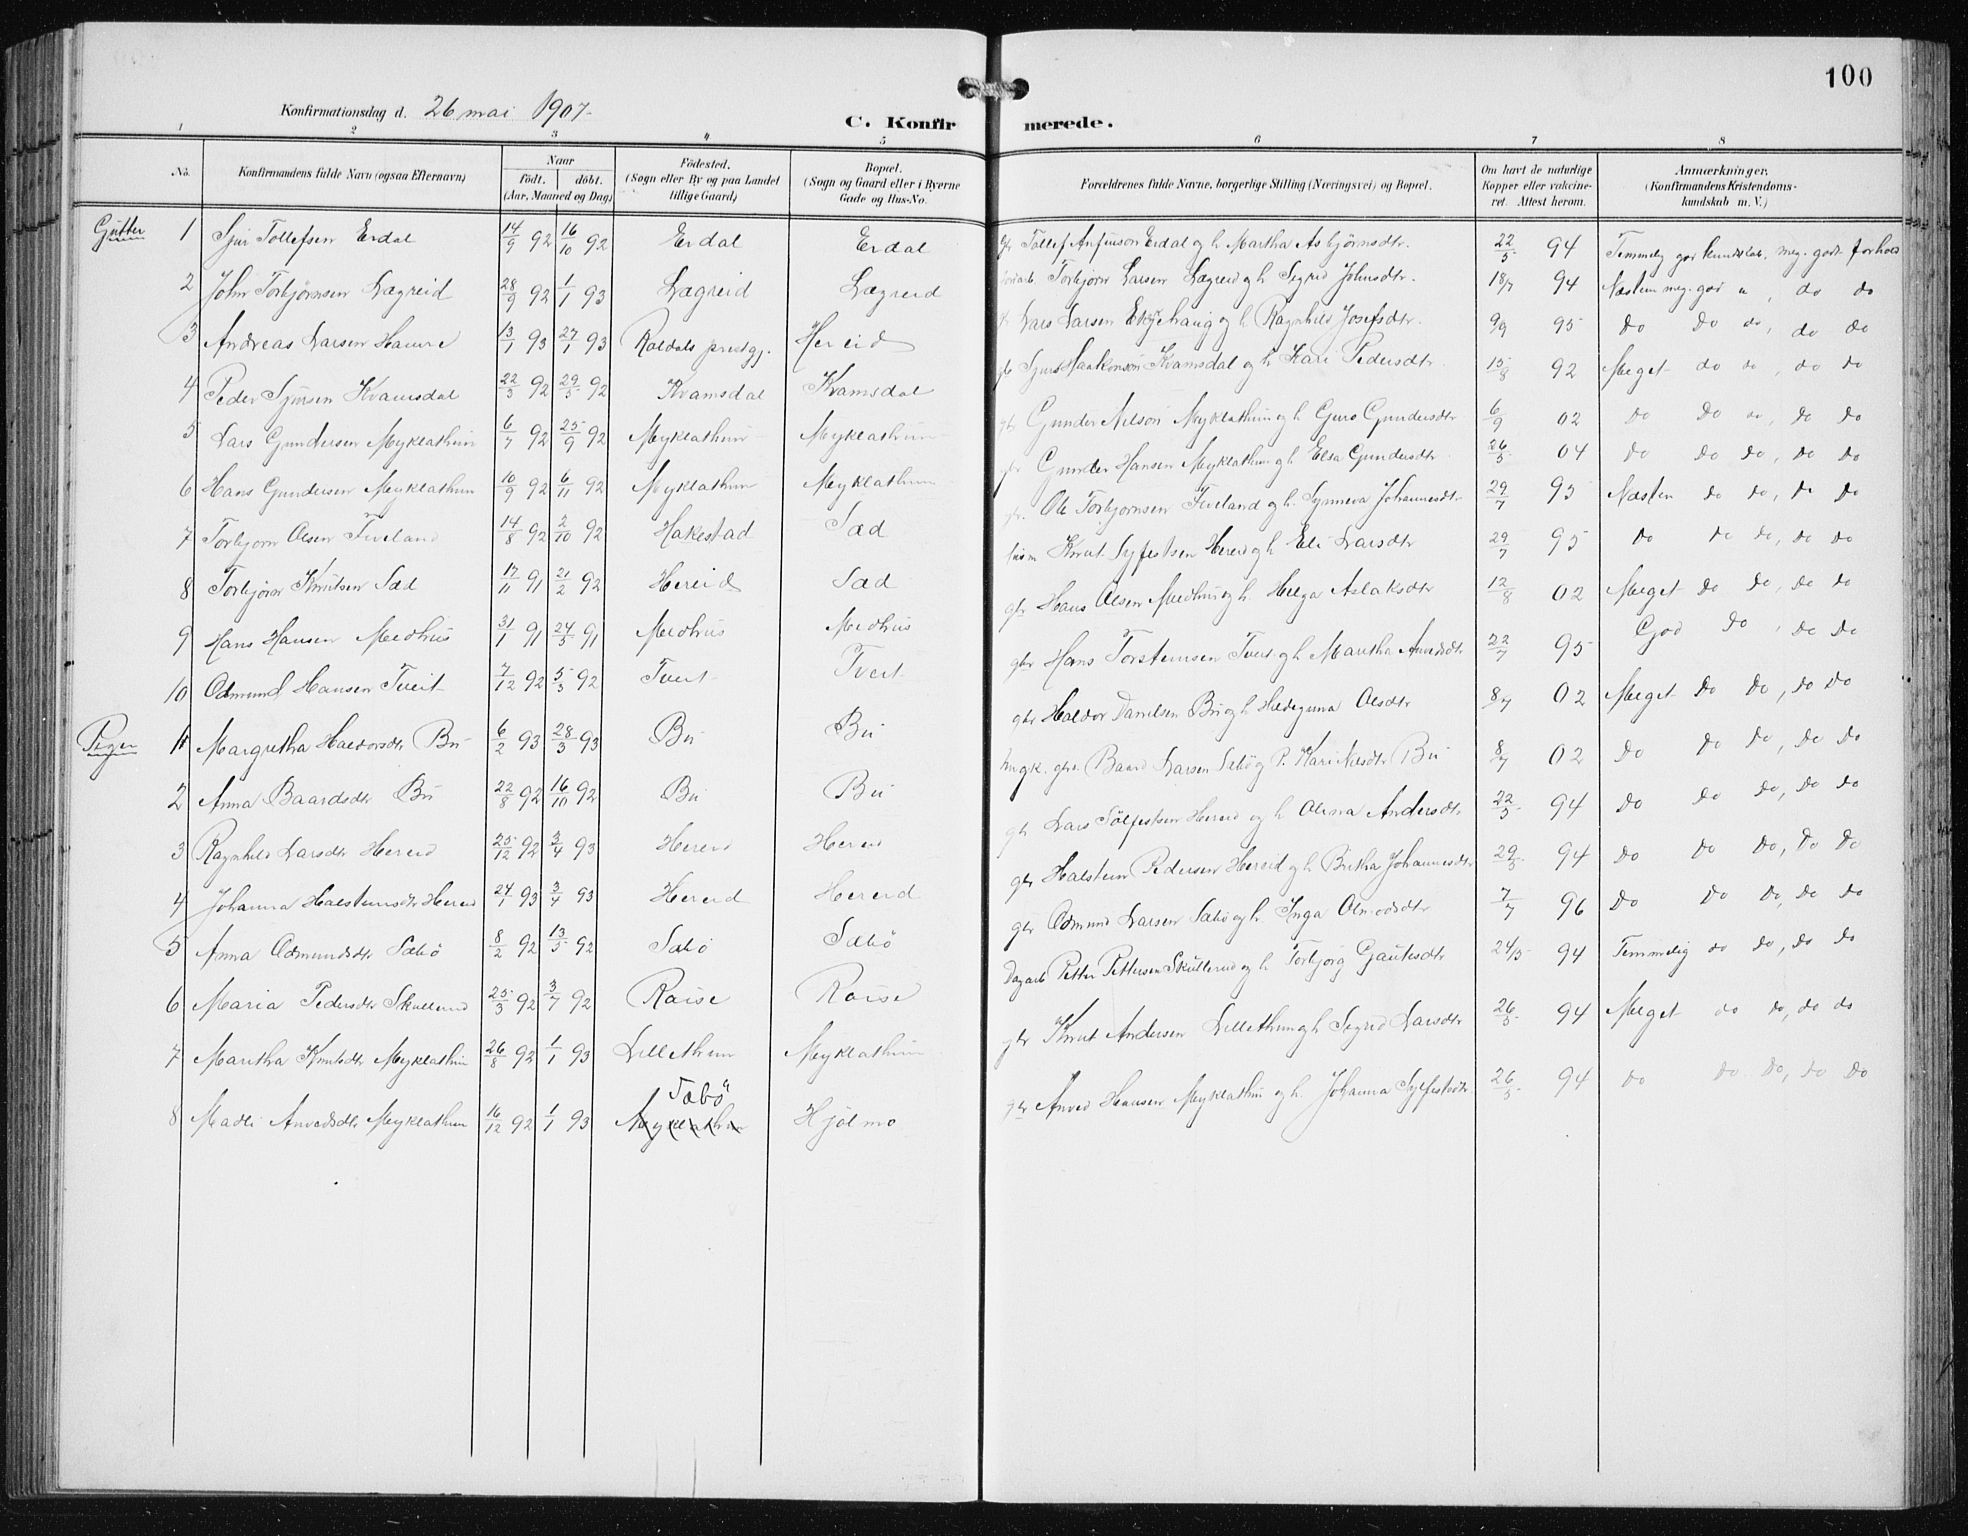 100
Konfirmationsdag d. 26 mai 1907.
C. Konfirmerede.
1 2 3 4 5 6 7 8
No. Konfirmandens fulde Navn (ogsaa Efternavn) Naar født. døbt. (Aar, Maaned og Dag) Födested. (Sogn eller By og paa Landet tillige Gaard) Bopæl. (Sogn og Gaard eller i Byerne Gade og Hus-No. Forældrenes fulde Navne, borgerlige Stilling (Næringsvei) og Bopæl. Om havt de naturlige Kopper eller vakcineret. Attest herom. Anmærkninger. (Konfirmandens Kristendomskundskab m. V.)
Gutter 1 Sjur Tollefsen Erdal 14/9 92 16/10 92 Erdal Erdal Tollef Anfinson Erdal og h. Martha Asbjörnsdtr. 22/5 94 Temmelig god kundskab, meg. godt forhold
2 John Torbjörnsen Lægreid 28/9 92 1/1 93 Lægreid Lægreid Torbjörn Larsen Lægreid og h. Sygrid Johnsdtr. 18/7 94 Næsten meg. god do, do do
3 Andreas Larsen Hamre 13/1 93 27/1 93 Roldals prestgj. Hereid Lars Larsen Ekjehaug og h. Ragnhild Josefsdtr. 9/9 95 Do Do do, do do
4 Peder Sjursen Kvamsdal 22/3 92 29/5 92 Kvamsdal Kvamsdal gbr Sjurs Haakonson Kvamsdal og h. Kari Pedersdtr. 15/8 92 Meget do do, do do
5 Lars Gundersen Myklathun 6/7 92 25/9 92 Myklathun Myklathun gbr Gunder Nilson Myklathun og h. Guro Gundersdtr 6/9 02 Do Do do, do do
6 Hans Gundersen Myklathun 10/9 92 6/11 92 Myklathun Myklathun gbr Gunder Hansen Myklathun og h. Elsa Gundersdtr. 26/5 04 Do Do do, do do
7 Torbjorn Olsen Tveland 14/8 92 2/10 92 Hakestad Sæd gbr. Ole Torbjornsen Tveland og h. Synneva Johannesdtr. 29/7 95 Næsten do do, do do
8 Torbjörn Knutsen Sæd 17/11 91 21/2 92 Hereid Sæd husm Knut Syfestsen Hereid og h. Eli Larsdtr 29/7 95 Do Do do, do do
9 Hans Hansen Medhus 31/1 91 24/5 91 Medhus Medhus gbr Hans Olsen Medhus og h. Helga Aslaksdtr 12/8 02 Meget do do, do do
10 Odmund Hansen Tveit 7/12 92 5/3 92 Tveit Tveit gbr Hans Torsteinsen Tveit og h. Maritha Anvedsdtr 22/7 95 God do, do do
Piger 1 Margretha Haldorsdtr Bu 6/2 93 28/3 93 Bu Bu gbr Haldor Danielsen Bu og h. Hildeguna Olsdtr 8/7 02 Meget do do, do do
2 Anna Baardsdtr Bu 22/8 92 16/10 92 Bu Bu ungk. gbr. Baard Larsen Sebö og P. Kari Nilsdtr Bu 8/7 02 Do Do do, do do
3 Ragnhild Larsdtr Hereid 25/12 92 3/4 93 Hereid Hereid gbr Lars Sölfestsen Hereid og h. Olina Andersdtr 22/5 94 Do do do, do do
4 Johanna Halsteinsdtr Hereid 24/1 93 3/4 93 Hereid Hereid gbr Halstein Pedersen Hereid og h. Britha Johannesdtr 29/5 94 Do do do, do do
5 Anna Odmundsdtr Sæbö 8/2 92 13/5 92 Sæbö Sæbö gbr Odmund Larsen Sæbö og h. Inga Olmodsdtr 7/7 96 Do Do do, do do
6 Maria Pedersdtr Skullerud 25/3 92 3/7 92 Roise Roise Dagarb Petter Pettersen Skullerud og h. Torbjörg Gautesdtr 24/5 94 Temmelig do do, do do
7 Maritha Knutsdtr Myklathun 26/8 92 1/1 93 Lillethun Myklathun gbr Knut Andersen Lillethun og h. Sygrid Larsdtr 26/5 94 Meget do do, do do
8 Madli Anvedsdtr Myklathun 16/12 92 1/1 93 Sæbö Myklathun Hjölmo gbr Anved Hansen Myklathun og h. Johanna Sylfestsdtr. 26/5 94 Do Do do, do do